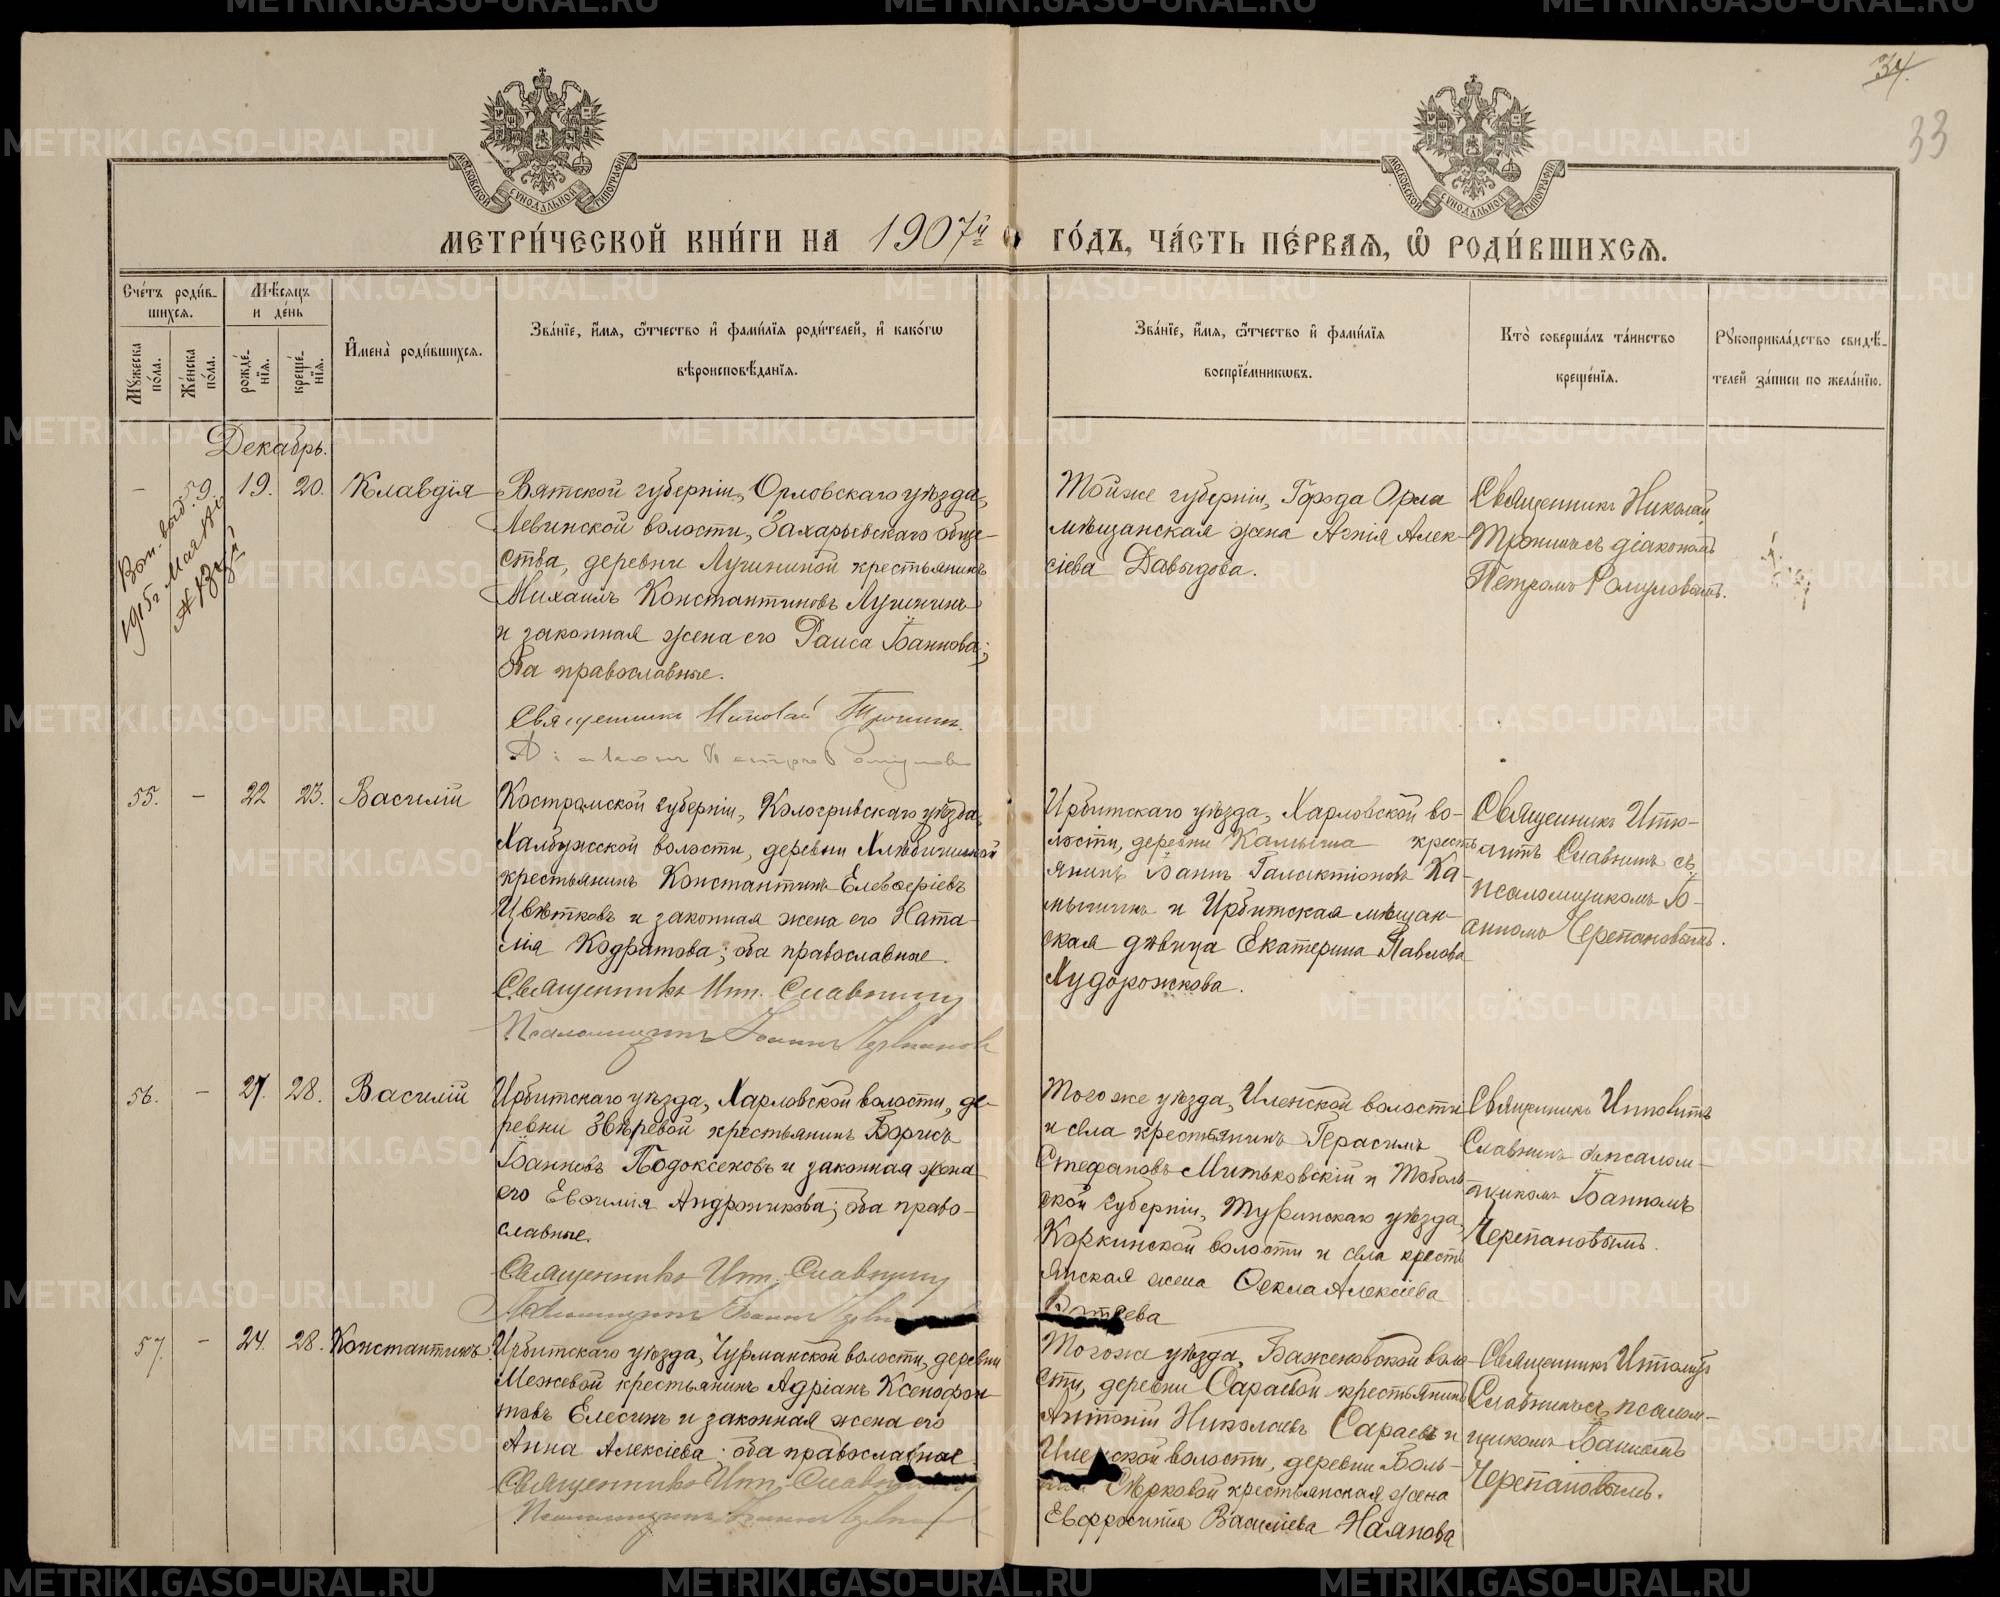 34.
33
МОСКОВСКОЙ СѴНОДАЛЬНОЙ ТИПОГРАФІИ
МОСКОВСКОЙ СѴНОДАЛЬНОЙ ТИПОГРАФІИ
МЕТРИ́ЧЕСКОЙ КНИ́ГИ НА 1907й ГО́ДЪ, ЧА́СТЬ ПЕ́РВАѦ, Ѽ РОДИ́ВШИХСѦ.
Сче́тъ роди́в-
шихсѧ.
Мѣ́сѧцъ
и де́нь
Мꙋ́жеска
по́ла.
Же́нска
по́ла.
рожде́-
нїѧ.
креще́-
нїѧ.
И҆мена̀ роди́вшихсѧ.
Зва́нїе, и҆́мѧ, ѻ҆́тчество и҆ фами́лїѧ роди́телей, и҆ како́гѡ
вѣроисповѣ́данїѧ.
Зва́нїе, и҆́мѧ, ѻ҆́тчество и҆ фами́лїѧ
воспрїе́мникѡвъ.
Кто̀ соверша́лъ та́инство
креще́нїѧ.
Рꙋкоприкла́дство свидѣ́-
телей за́писи по жела́нїю.
Декабрь.
– 59. 19. 20. Клавдія
выд.
1916 г. Мая
Вятской губерніи, Орловскаго уѣзда,
Левинской волости, Захарьевскаго обще-
ства, деревни Лугининой крестьянинъ
Михаилъ Константиновъ Лугининъ
и законная жена его Раиса Іоаннова;
оба православные.
Священникъ Николай Тронинъ.
Діаконъ Петръ Ромуловъ
Тойже губерніи, Города Орла
мѣщанская жена Агнія Алек-
сіева Давыдова.
Священникъ Николай
Тронинъ съ діакономъ
Петромъ Ромуловымъ.
55. – 22 23. Василій
Костромской губерніи, Кологривскаго уѣзда,
Халбужской волости, деревни
крестьянинъ Константинъ Елевѳеріевъ
Цвѣтковъ и законная жена его Ната-
лія Кодратова; оба православные.
Священникъ Ипп. Славнинъ
Псаломщикъ Іоаннъ Черепановъ
Ирбитскаго уѣзда, Харловской во-
лости, деревни Камыша кресть
янинъ Іоаннъ Галактіоновъ Ка-
мышинъ и Ирбитская мѣщан-
ская дѣвица Екатерина Павлова
Худорожкова.
Священникъ Иппо-
литъ Славнинъ съ
псаломщикомъ Іо-
анномъ Черепановымъ.
56. – 27. 28. Василій
Ирбитскаго уѣзда, Харловской волости, де-
ревни Звѣревой крестьянинъ Борисъ
Іоанновъ Подоксеновъ и законная жена
его Евѳимія Андроникова; оба право-
славные.
Священникъ Ипп. Славнинъ
Псаломщикъ Іоаннъ
Тогоже уѣзда, Иленской волости
и села крестьянинъ Герасимъ
Стефановъ Митьковскій и Тоболь
ской губерніи, Туринскаго уѣзда,
Коркинской волости и села кресть
янская жена Ѳекла Алексіева
Священникъ Ипполитъ
Славнинъ съ псалом-
щикомъ Іоанномъ
Черепановымъ.
57. – 24. 28. Константинъ.
Ирбитскаго уѣзда, Чурманской волости, деревни
Межевой крестьянинъ Адріанъ Ксенофон-
товъ Елесинъ и законная жена его
Анна Алексіева; оба православные
Священникъ Ипп. Славнинъ
Псаломщикъ Іоаннъ
Тогоже уѣзда, Баженовской воло-
сти, деревни Сараевой крестьянинъ
Антоній Николаевъ Сараевъ и
Иленской волости, деревни Боль-
Сѣрковой крестьянская жена
Евфросинія Василіева Наянова
Священникъ Ипполитъ
Славнинъ съ псалом-
щикомъ Іоанномъ
Черепановымъ.
METRIKI.GASO-URAL.RU